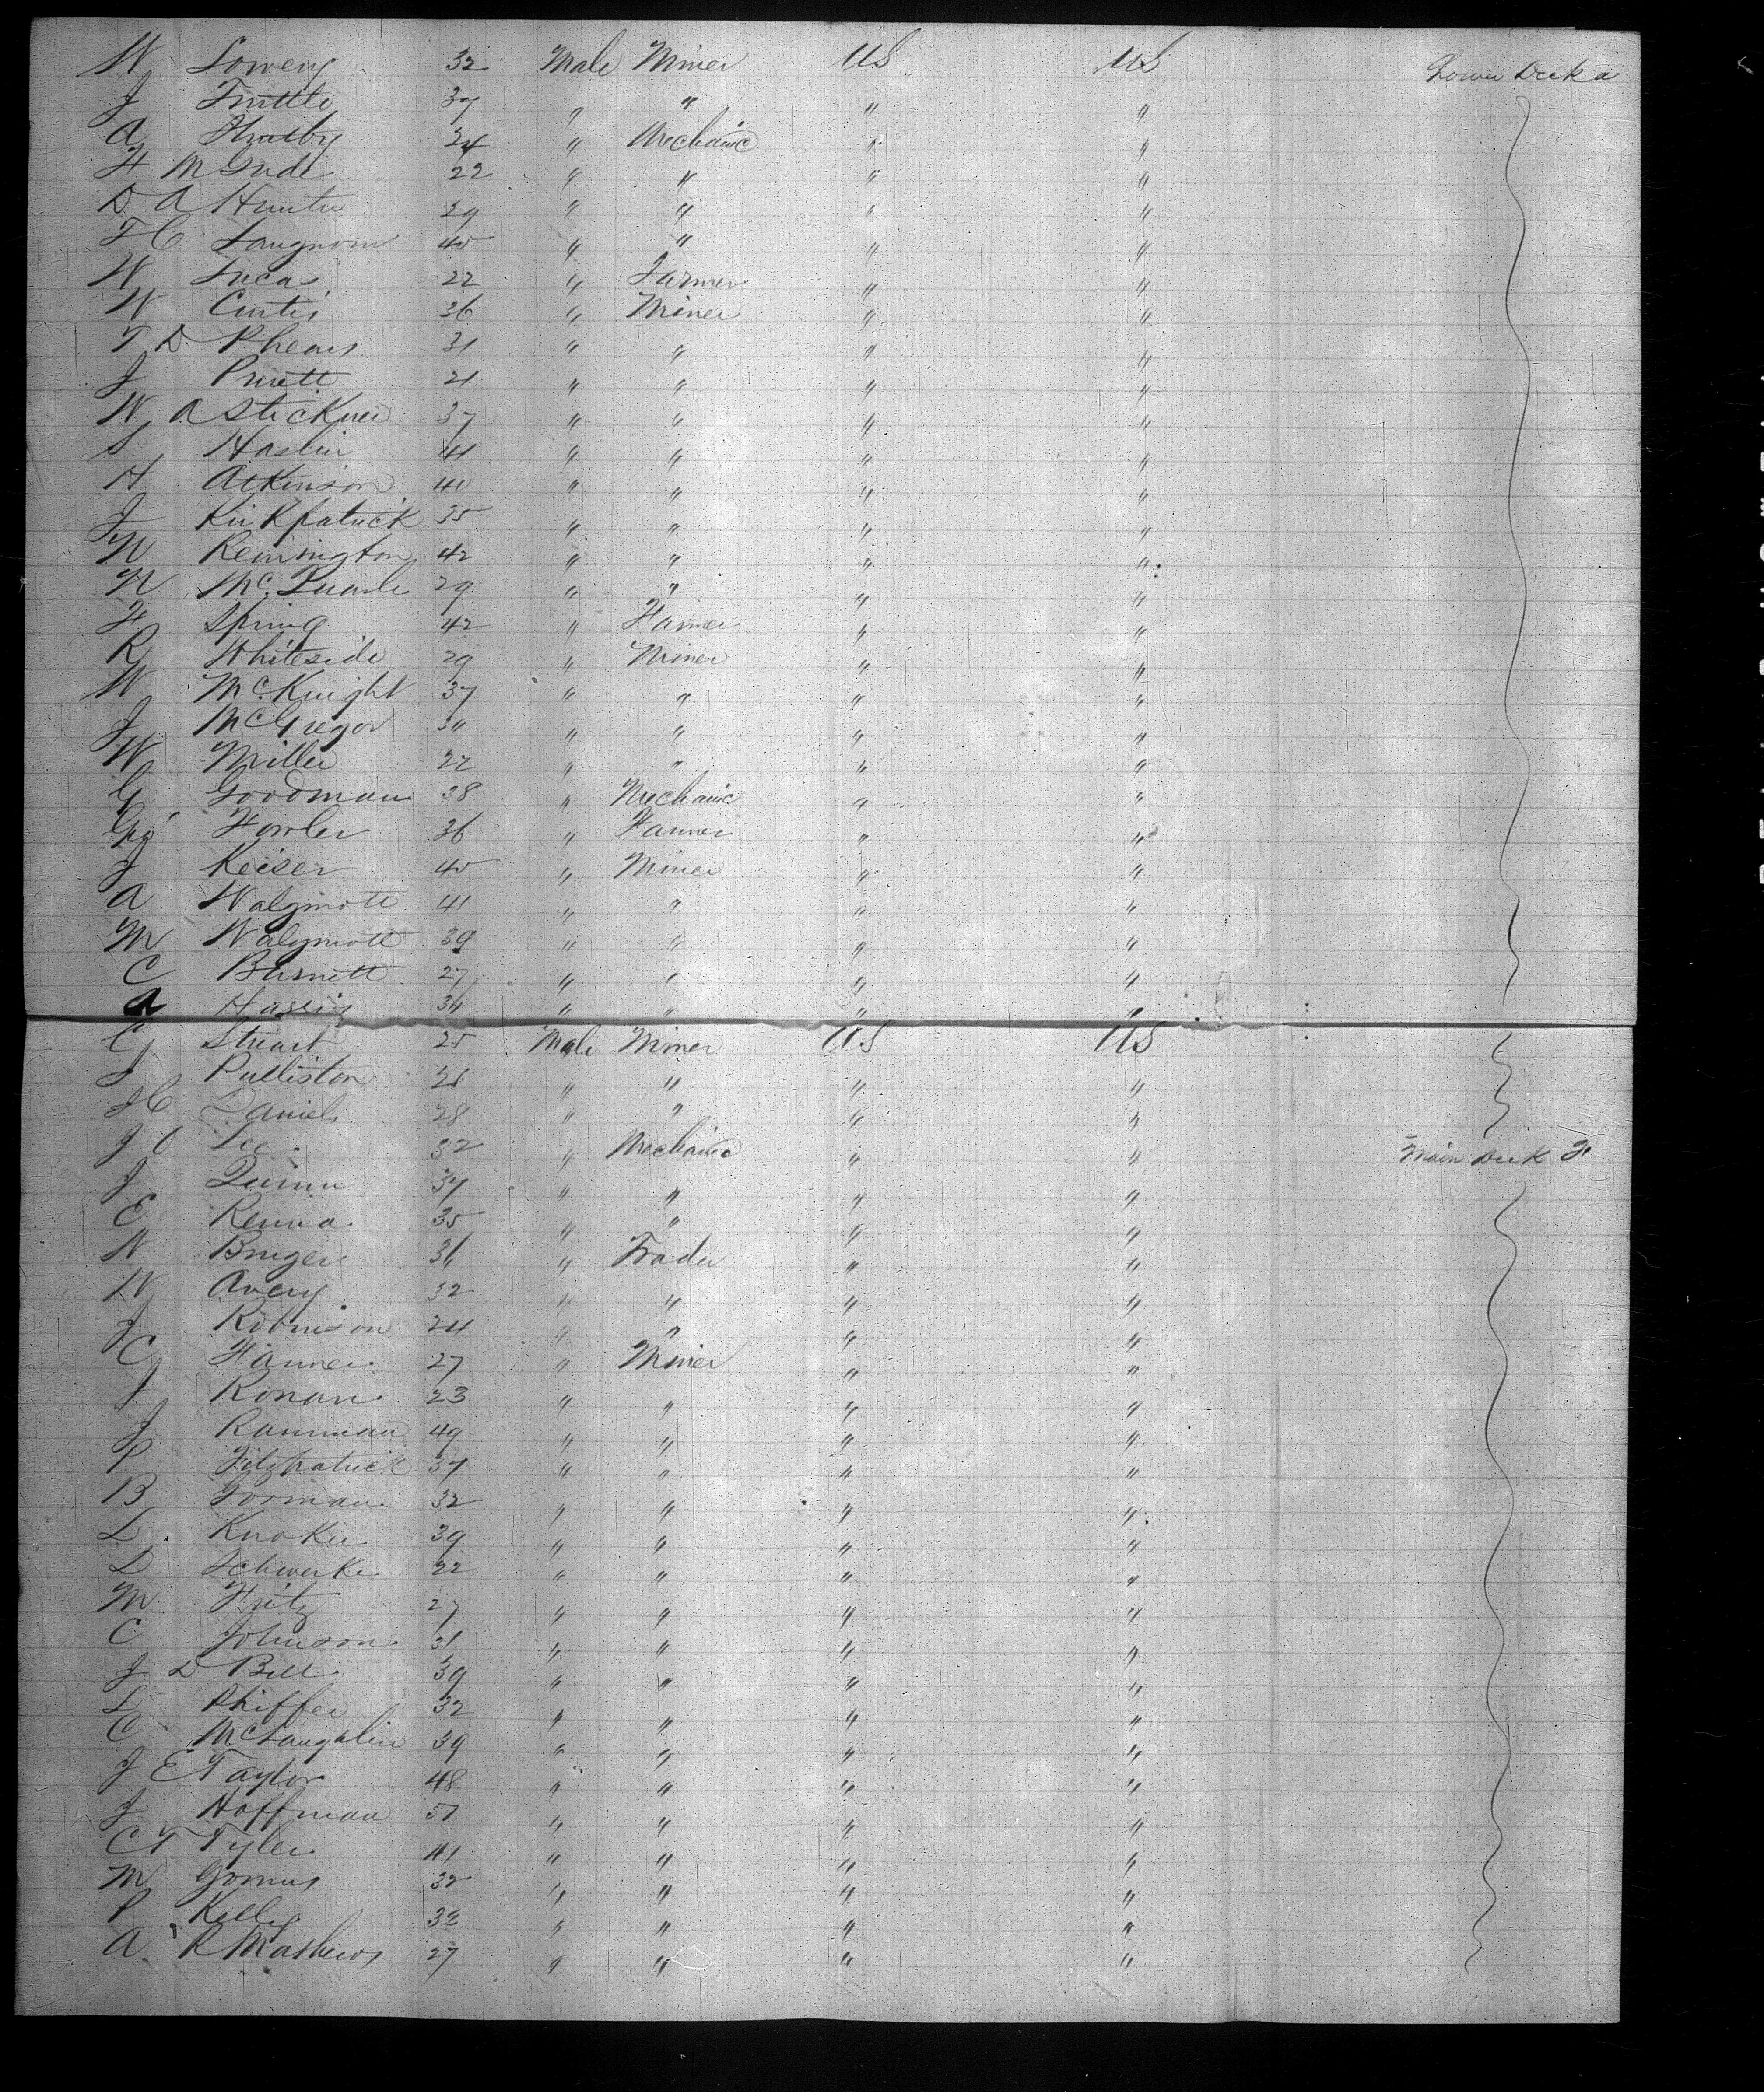 W Lowery 32 Male Miner US US Lower Deck a
J Tuttle 37 " " " "
A 24 " Mechanic " "
H 22 " " " "
D A Hunter 29 " " " "
T C 45 " " " "
W Lucas 22 " Farmer " "
W Curtis 36 " Miner " "
T D Phears 31 " " " "
J Pruett 21 " " " "
W A Stickner 37 " " " "
S Haslin 41 " " " "
H Atkinson 40 " " " "
J Kirkpatrick 35 " " " "
W Remington 42 " " " "
N 29 " " " "
F Spring 42 " Farmer " "
R Whiteside 29 " Miner " "
W McKnight 37 " " " "
J McGregor " " " "
W Miller 22 " " " "
G Goodman 38 " Mechanic " "
Geo Fowler 36 " Farmer " "
J Keiser 45 " Miner " "
A Walgmott 41 " " " "
M Walgmott 39 " " " "
C Burnett 27 " " " "
A " " " "
C Stuart 25 Male Miner US US
J Pulliston " " " "
J C Daniels 28 " " " "
J C Lee 32 " Mechanic " " Main Deck F
J Quinn 37 " " " "
E 35 " " " "
N " Trader " "
W Avery 32 " " " "
J Robinson 24 " " " "
C 27 " Miner " "
J Ronan 23 " " " "
J 49 " " " "
P Fitzpatrick 37 " " " "
B Gorman 32 " " " "
L 39 " " " "
D 22 " " " "
M Fritz 27 " " " "
C Johnson 31 " " " "
J D Bell 39 " " " "
L Phiffer 32 " " " "
C McLaughlin 39 " " " "
J E Taylor 48 " " " "
J Hoffman " " " "
C T Tyler 41 " " " "
M 32 " " " "
P Kelly " " " "
A R Mathews 27 " " " "